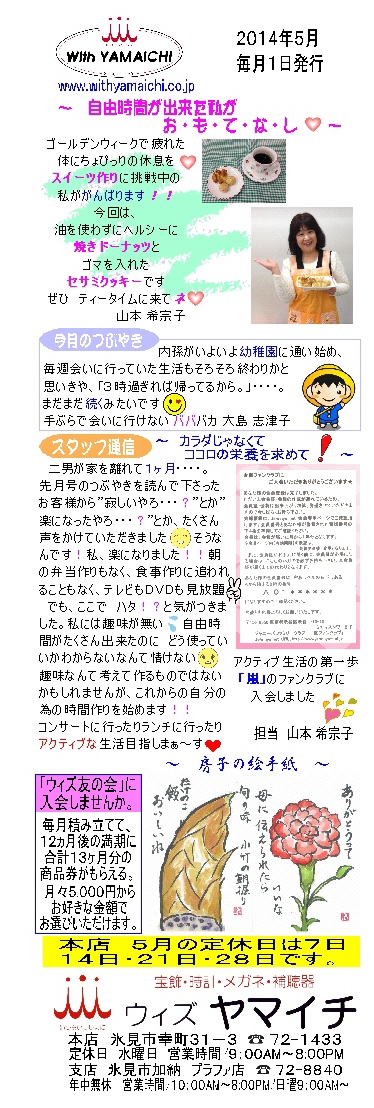 With YAMAICHI
2014年5月
毎月1日発行
www.withyamaichi.co.jp
～ 自由時間が出来た私が
お・も・て・な・し ～
ゴールデンウィークで 疲れた
体にちょぴっりの休息を
スイーツ作りに挑戦中の
私ががんばります！！
今回は、
油を使わずにヘルシーに
焼きドーナッツと
ゴマを入れた
セサミクッキーです
ぜひ ティータイムに来てネ
山本 希宗子
今月のつぶやき
内孫がいよいよ幼稚園に通い始め、
毎週会いに行っていた生活もそろそろ終わりかと
思いきや、「3時過ぎれば帰ってるから。」・・・・。
まだまだ続くみたいです
手ぶらで会いに行けない ババ バカ 大島 志津子
スタッフ通信
～ カラダじゃなくて
ココロの栄養を求めて！ ～
二男が家を離れて1ヶ月・・・・。
先月号のつぶやきを読んで下さった
お客様から”寂しいやろ・・・？”とか”
楽になったやろ・・・？”とか、たくさん
声をかけていただきました そうな
んです！私、楽になりました！！朝
の弁当作りもなく、食事作りに追われ
ることもなく、テレビもDVDも見放題
でも、ここで ハタ！？と気がつきま
した。私には趣味が無い 自由時
間がたくさん出来たのに どう使ってい
いかわからないなんて情けない
趣味なんて考えて作るものではない
かもしれませんが、これからの自分の
為の時間作りを始めます！！
コンサートに行ったりランチに行ったり
アクティブな生活目指しまぁ～す
アクティブ生活の第一歩
「嵐」のファンクラブに
入会しました
担当 山本 希宗子
～ 房子の絵手紙 ～
「ウィズ友の会」に
入会しませんか。
毎月積み立てて、
12ヵ月後の満期に
合計13ヶ月分の
商品券がもらえる。
月々5,000円から
お好きな金額で
お選びいただけます。
たけのこ
飯
おいしいね
旬の味 小竹の朝掘り
ありがとうって
母に伝えられたら
いいな
本店 5月の定休日は7日
14日・21日・28日です。
宝飾・時計・メガネ・補聴器
ウィズ ヤマイチ
本店 氷見市幸町31－3 ☎72-1433
定休日 水曜日 営業時間/9:00AM～8:00PM
支店 氷見市加納 プラファ店 ☎72-8840
年中無休 営業時間/10:00AM～8:00PM/日曜9:00AM～